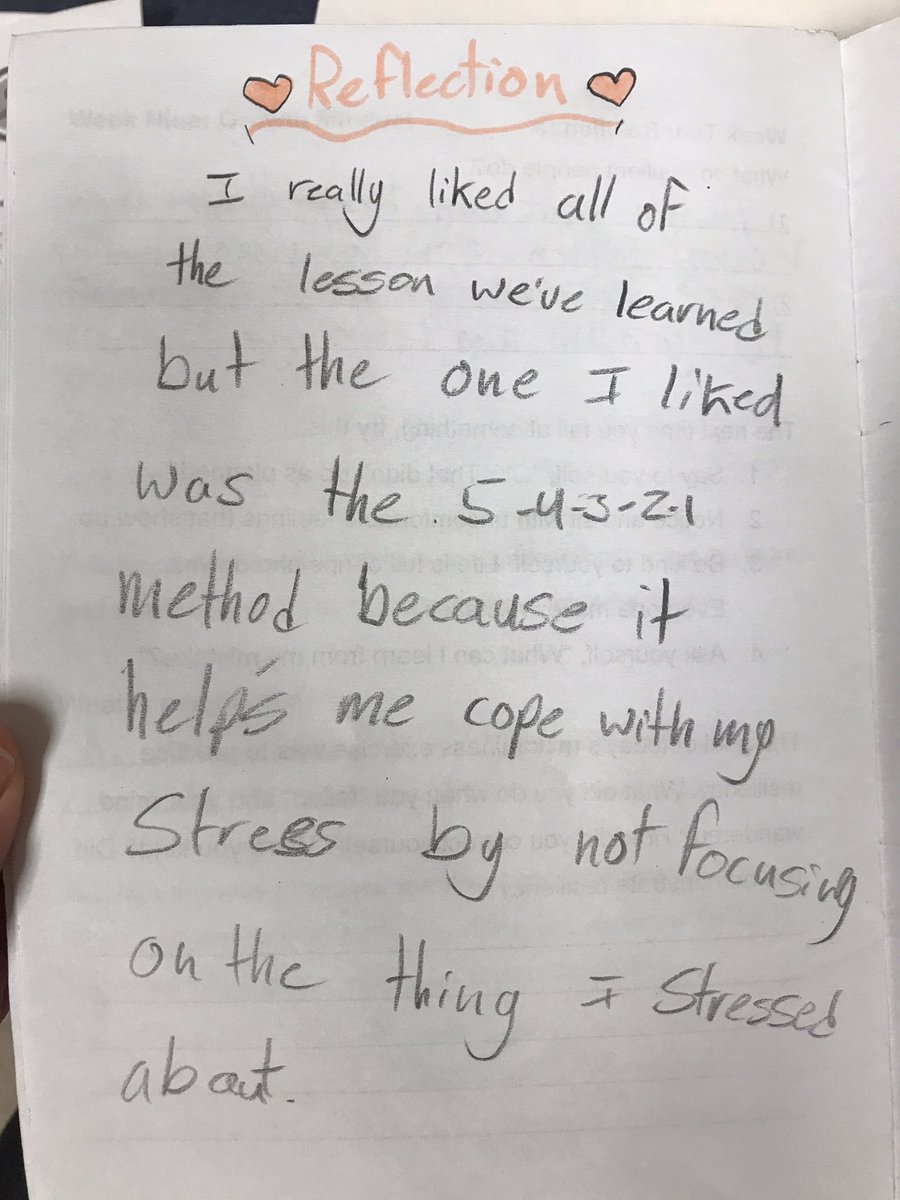 Reflection
I really liked all of
the lesson we've learned
but the one I liked
was the 5-4-3-2-1
method because it
helps me cope with my
Stress by not focusing
on the thing I stressed
about.